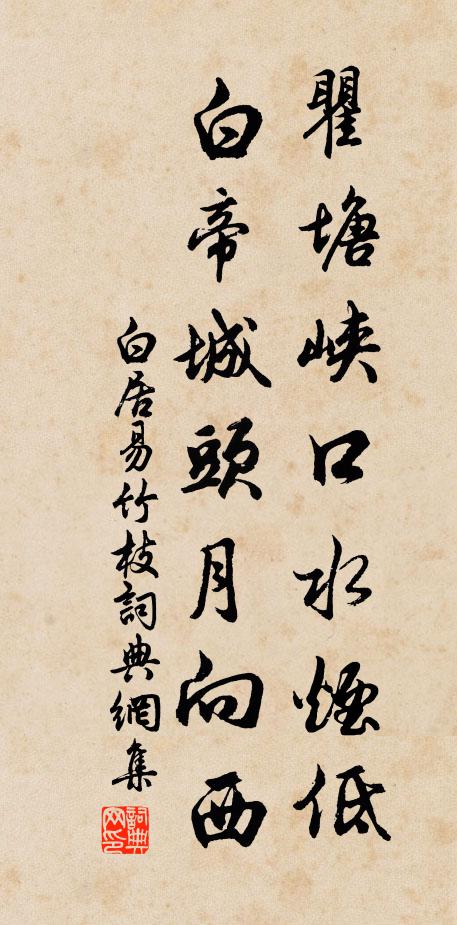 瞿塘峽口水煙低
白帝城頭月向西
白居易竹枝詞典網集
詞典网印